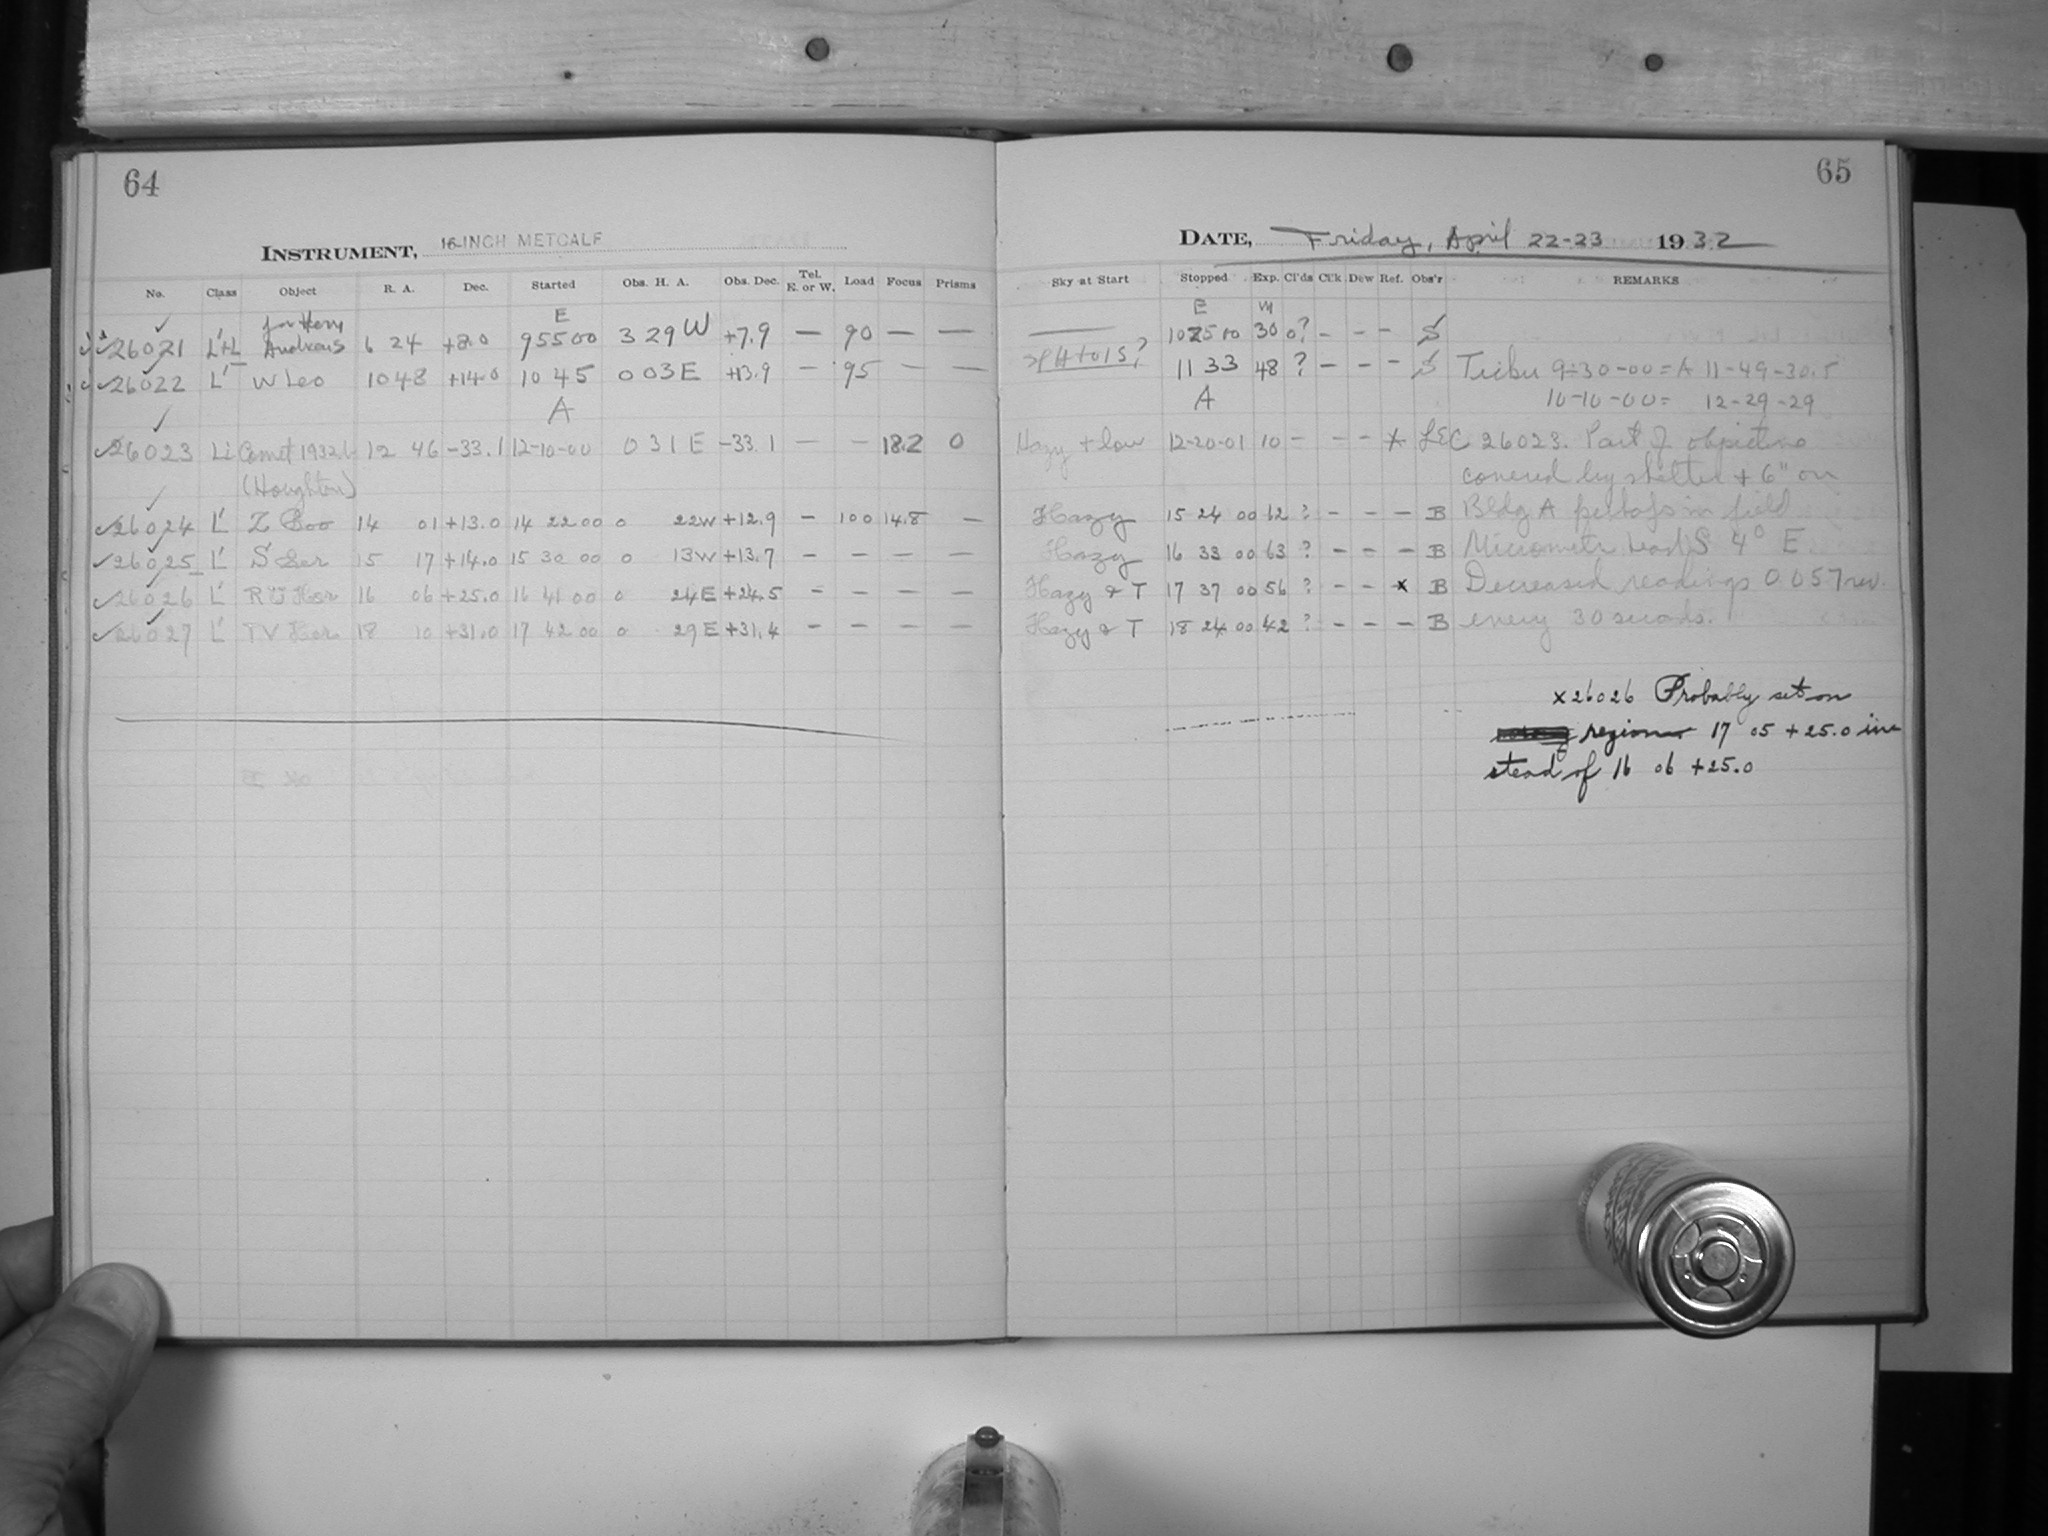 64
INSTRUMENT, 16-INCH METCALF
No. Class Object R. A. Dec. Started Obs. H. A. Obs. Dec. Tel. E. or W. Load Focus Prisms
E
26021 L'+L Andrews 6 24 +8.0 9 55 00 3 29 W +7.9 — 90 — —
26022 L' W Leo 10 48 +14.0 10 45 0 03 E +13.9 — 95 — —
A
26023 Li Comet 1932b 12 46 -33.1 12-10-00 0 31 E -33.1 — — 18.2 0
(Houghton)
26024 L' Z Boo 14 01 +13.0 14 22 00 0 22W +12.9 — 100 14.8 —
26025 L' S Ser 15 17 +14.0 15 30 00 0 13W +13.7 — — — —
26026 L' RU Her 16 06 +25.0 16 41 00 0 24E +24.5 — — — —
26027 L' TV Her 18 10 +31.0 17 42 00 0 29E +31.4 — — — —
65
DATE, Friday, April 22-23 1932
Sky at Start Stopped Exp. Cl'ds Cl'k Dew Ref. Obs'r REMARKS
E m
10 25 00 30 0? — — — S
11 33 48 ? — — — S 9-30-00 = A 11-49-30.5
A 10-10-00 = 12-29-29
Hazy + low 12-20-01 10 — — — x LEC 26023. Part of objective
covered by shelter + 6" on
Hazy 15 24 00 62 ? — — — B Bldg A perhaps in field
Hazy 16 33 00 63 ? — — — B Micrometer head S 4° E
Hazy & T 17 37 00 56 ? — — x B Decreased readings 0.057 rev.
Hazy & T 18 24 00 42 ? — — — B every 30 seconds.
x26026 Probably set on
region 17 05 +25.0 in
stead of 16 06 +25.0